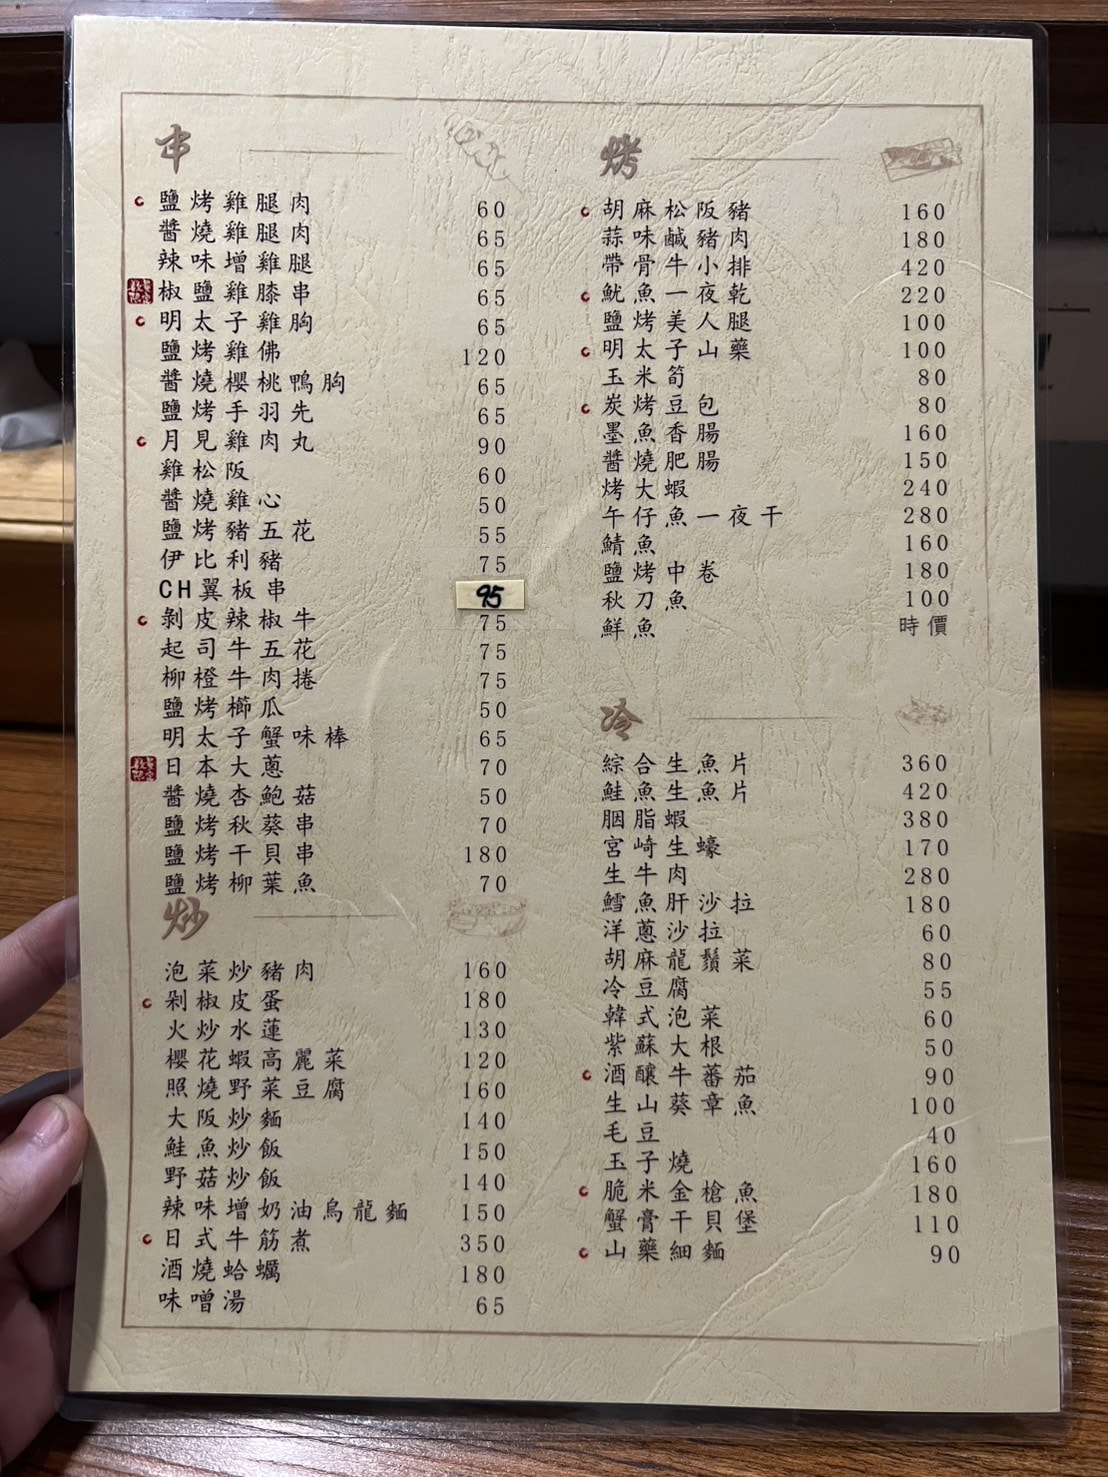 串
鹽烤雞腿肉 60
醬燒雞腿肉 65
辣味增雞腿 65
椒鹽雞膝串 65
明太子雞胸 65
鹽烤雞佛 120
醬燒櫻桃鴨胸 65
鹽烤手羽先 65
月見雞肉丸 90
雞松阪 60
醬燒雞心 50
鹽烤豬五花 55
伊比利豬 75
CH翼板串 95
剝皮辣椒牛 75
起司牛五花 75
柳橙牛肉捲 75
鹽烤櫛瓜 50
明太子蟹味棒 65
日本大蔥 70
醬燒杏鮑菇 50
鹽烤秋葵串 70
鹽烤干貝串 180
鹽烤柳葉魚 70
炒
泡菜炒豬肉 160
剁椒皮蛋 180
火炒水蓮 130
櫻花蝦高麗菜 120
照燒野菜豆腐 160
大阪炒麵 140
鮭魚炒飯 150
野菇炒飯 140
辣味增奶油烏龍麵 150
日式牛筋煮 350
酒燒蛤蠣 180
味噌湯 65
烤
胡麻松阪豬 160
蒜味鹹豬肉 180
帶骨牛小排 420
魷魚一夜乾 220
鹽烤美人腿 100
明太子山藥 100
玉米筍 80
炭烤豆包 80
墨魚香腸 160
醬燒肥腸 150
烤大蝦 240
午仔魚一夜干 280
鯖魚 160
鹽烤中卷 180
秋刀魚 100
鮮魚 時價
冷
綜合生魚片 360
鮭魚生魚片 420
胭脂蝦 380
宮崎生蠔 170
生牛肉 280
鱈魚肝沙拉 180
洋蔥沙拉 60
胡麻龍鬚菜 80
冷豆腐 55
韓式泡菜 60
紫蘇大根 50
酒釀牛蕃茄 90
生山葵章魚 100
毛豆 40
玉子燒 160
脆米金槍魚 180
蟹膏干貝堡 110
山藥細麵 90